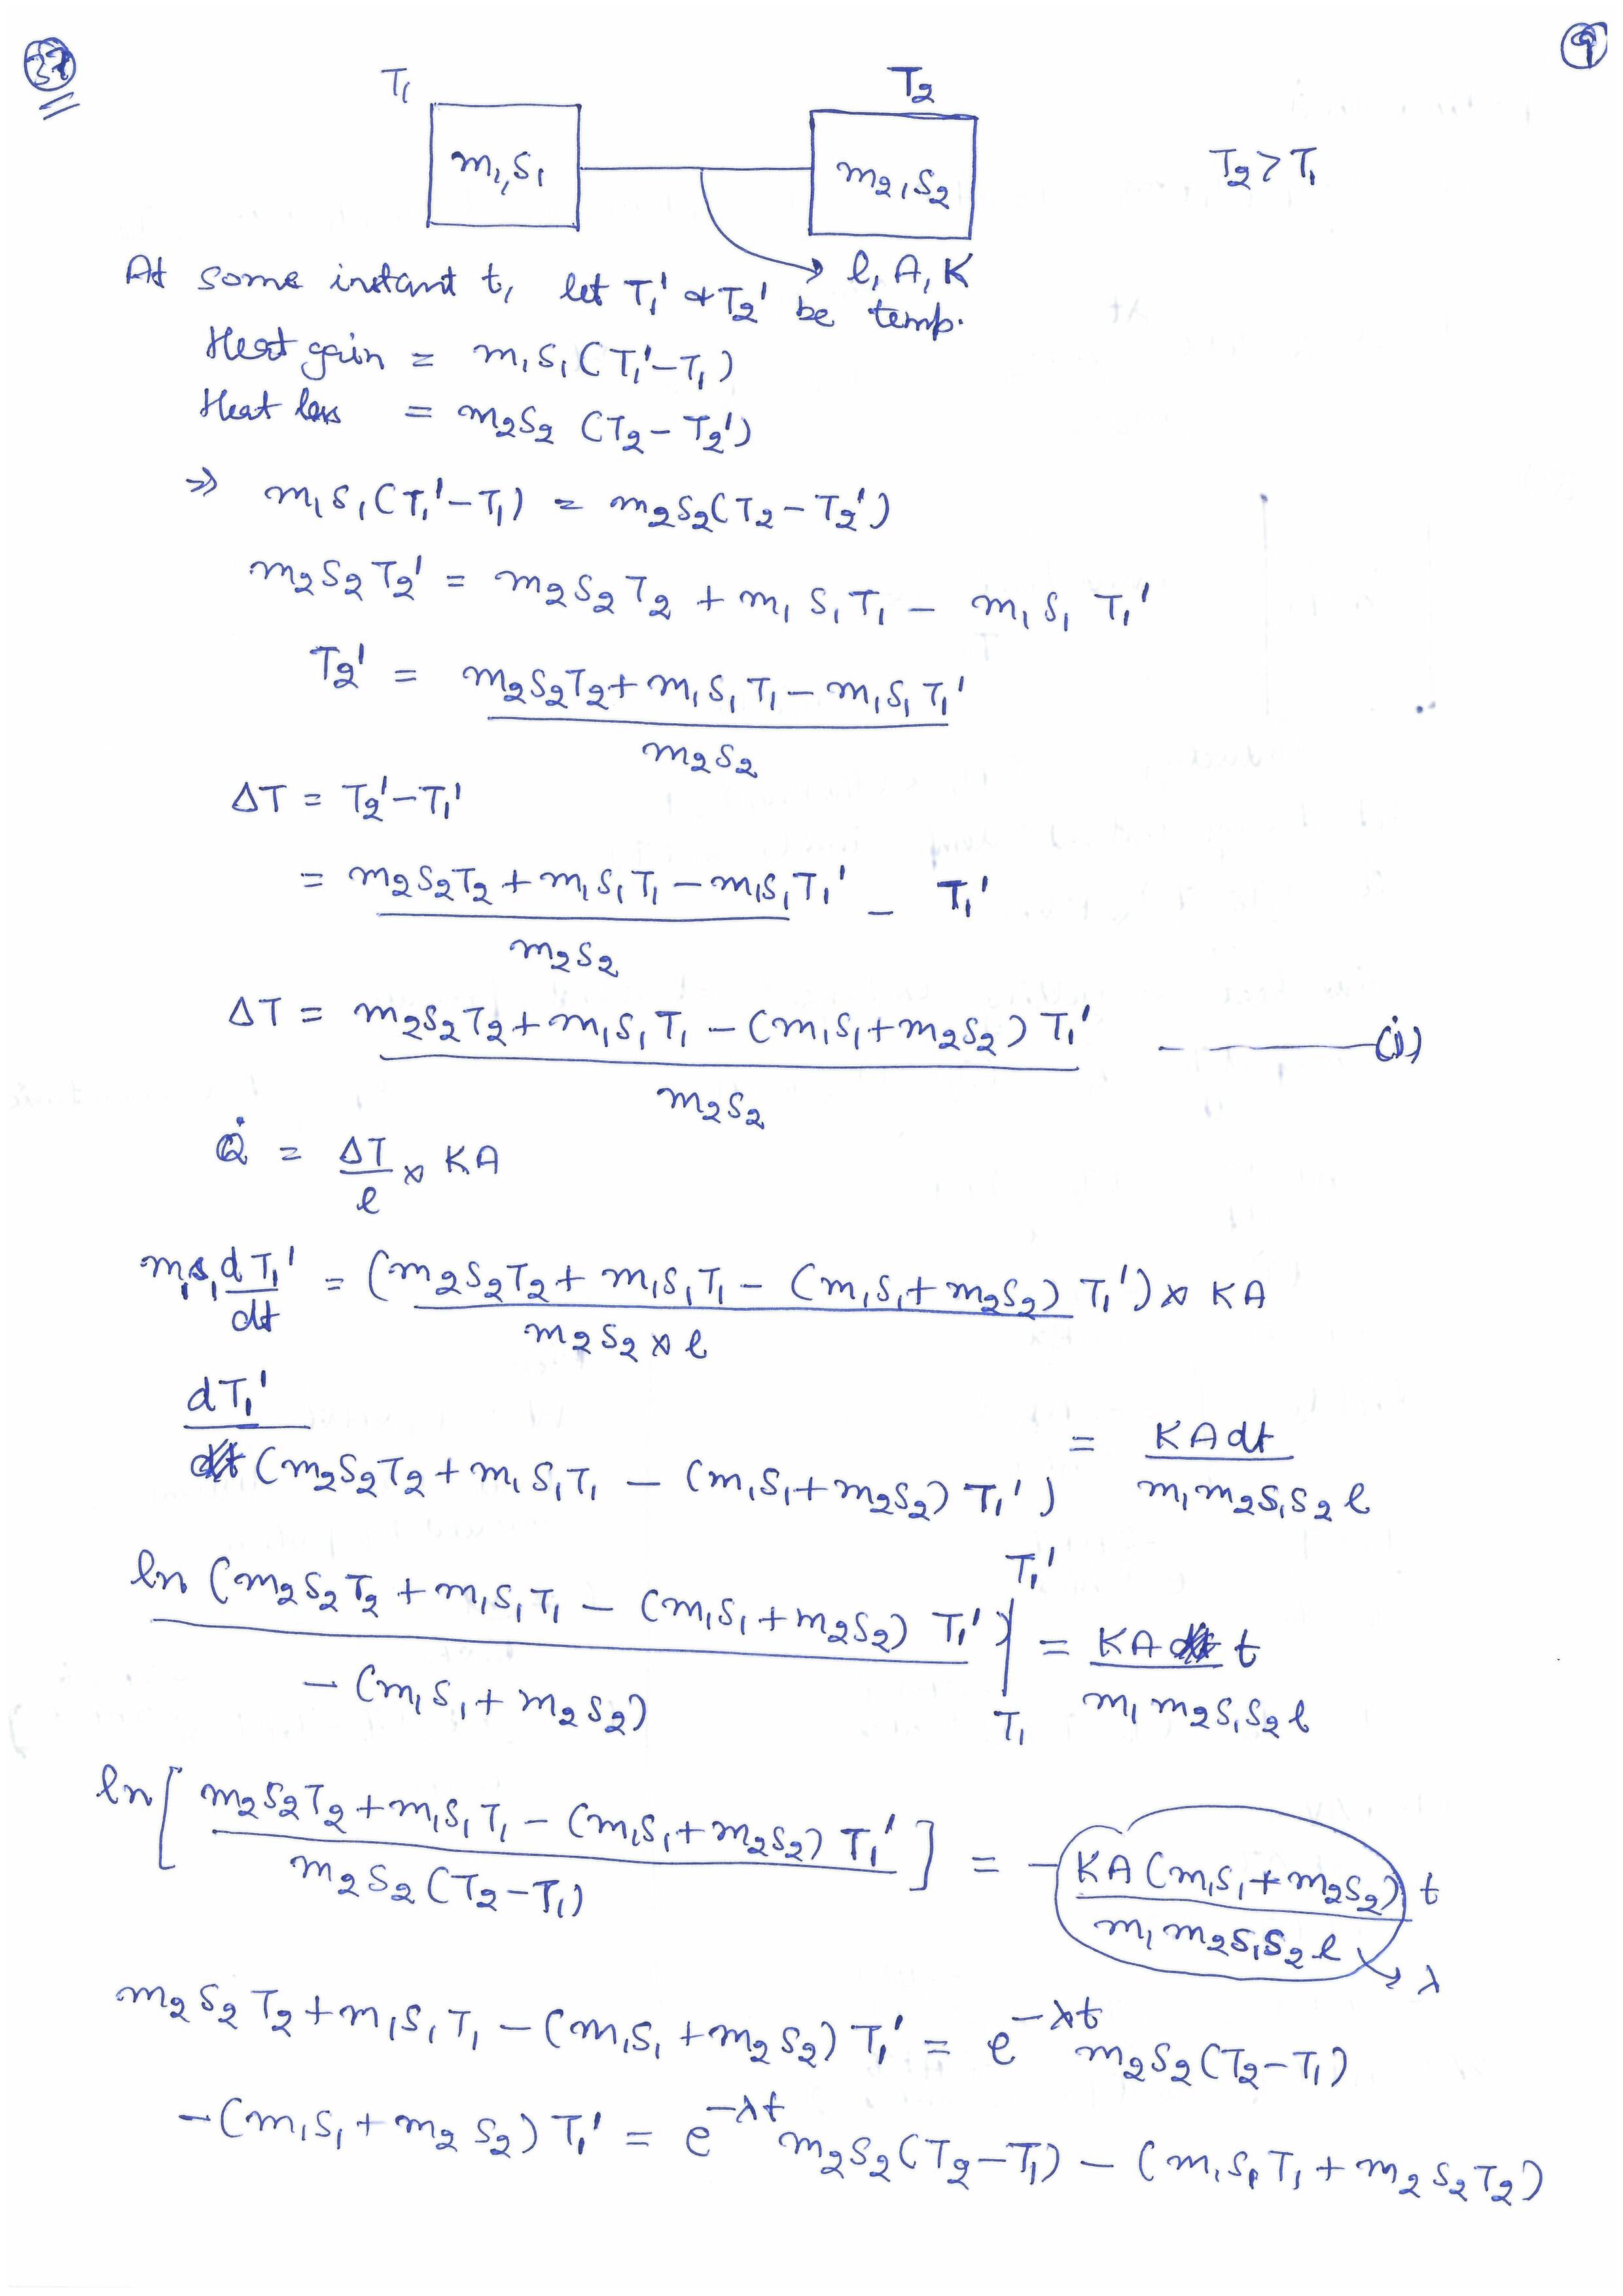 37
9
T₁ T₂
m₁,s₁ m₂,s₂ T₂>T₁
l, A, K
At some instant t, let T₁' & T₂' be temp.
Heat gain = m₁s₁(T₁'-T₁)
Heat loss = m₂s₂ (T₂-T₂')
⇒ m₁s₁(T₁'-T₁) = m₂s₂(T₂-T₂')
m₂s₂T₂' = m₂s₂T₂ + m₁s₁T₁ - m₁s₁T₁'
T₂' = (m₂s₂T₂+m₁s₁T₁-m₁s₁T₁')/(m₂s₂)
ΔT = T₂'-T₁'
= (m₂s₂T₂+m₁s₁T₁-m₁s₁T₁')/(m₂s₂) - T₁'
ΔT = (m₂s₂T₂+m₁s₁T₁-(m₁s₁+m₂s₂)T₁')/(m₂s₂) - ——(i)
Q̇ = ΔT/l × KA
m₁s₁ dT₁'/dt = (m₂s₂T₂+m₁s₁T₁-(m₁s₁+m₂s₂)T₁')/(m₂s₂×l) × KA
dT₁'/(m₂s₂T₂+m₁s₁T₁-(m₁s₁+m₂s₂)T₁') = KAdt/(m₁m₂s₁s₂l)
ln(m₂s₂T₂+m₁s₁T₁-(m₁s₁+m₂s₂)T₁')/(-(m₁s₁+m₂s₂)) |T₁' T₁ = KA t/(m₁m₂s₁s₂l)
ln[(m₂s₂T₂+m₁s₁T₁-(m₁s₁+m₂s₂)T₁')/(m₂s₂(T₂-T₁))] = -KA(m₁s₁+m₂s₂)/(m₁m₂s₁s₂l) t
→ λ
m₂s₂T₂+m₁s₁T₁-(m₁s₁+m₂s₂)T₁' = e^-λt m₂s₂(T₂-T₁)
-(m₁s₁+m₂s₂)T₁' = e^-λt m₂s₂(T₂-T₁)-(m₁s₁T₁+m₂s₂T₂)